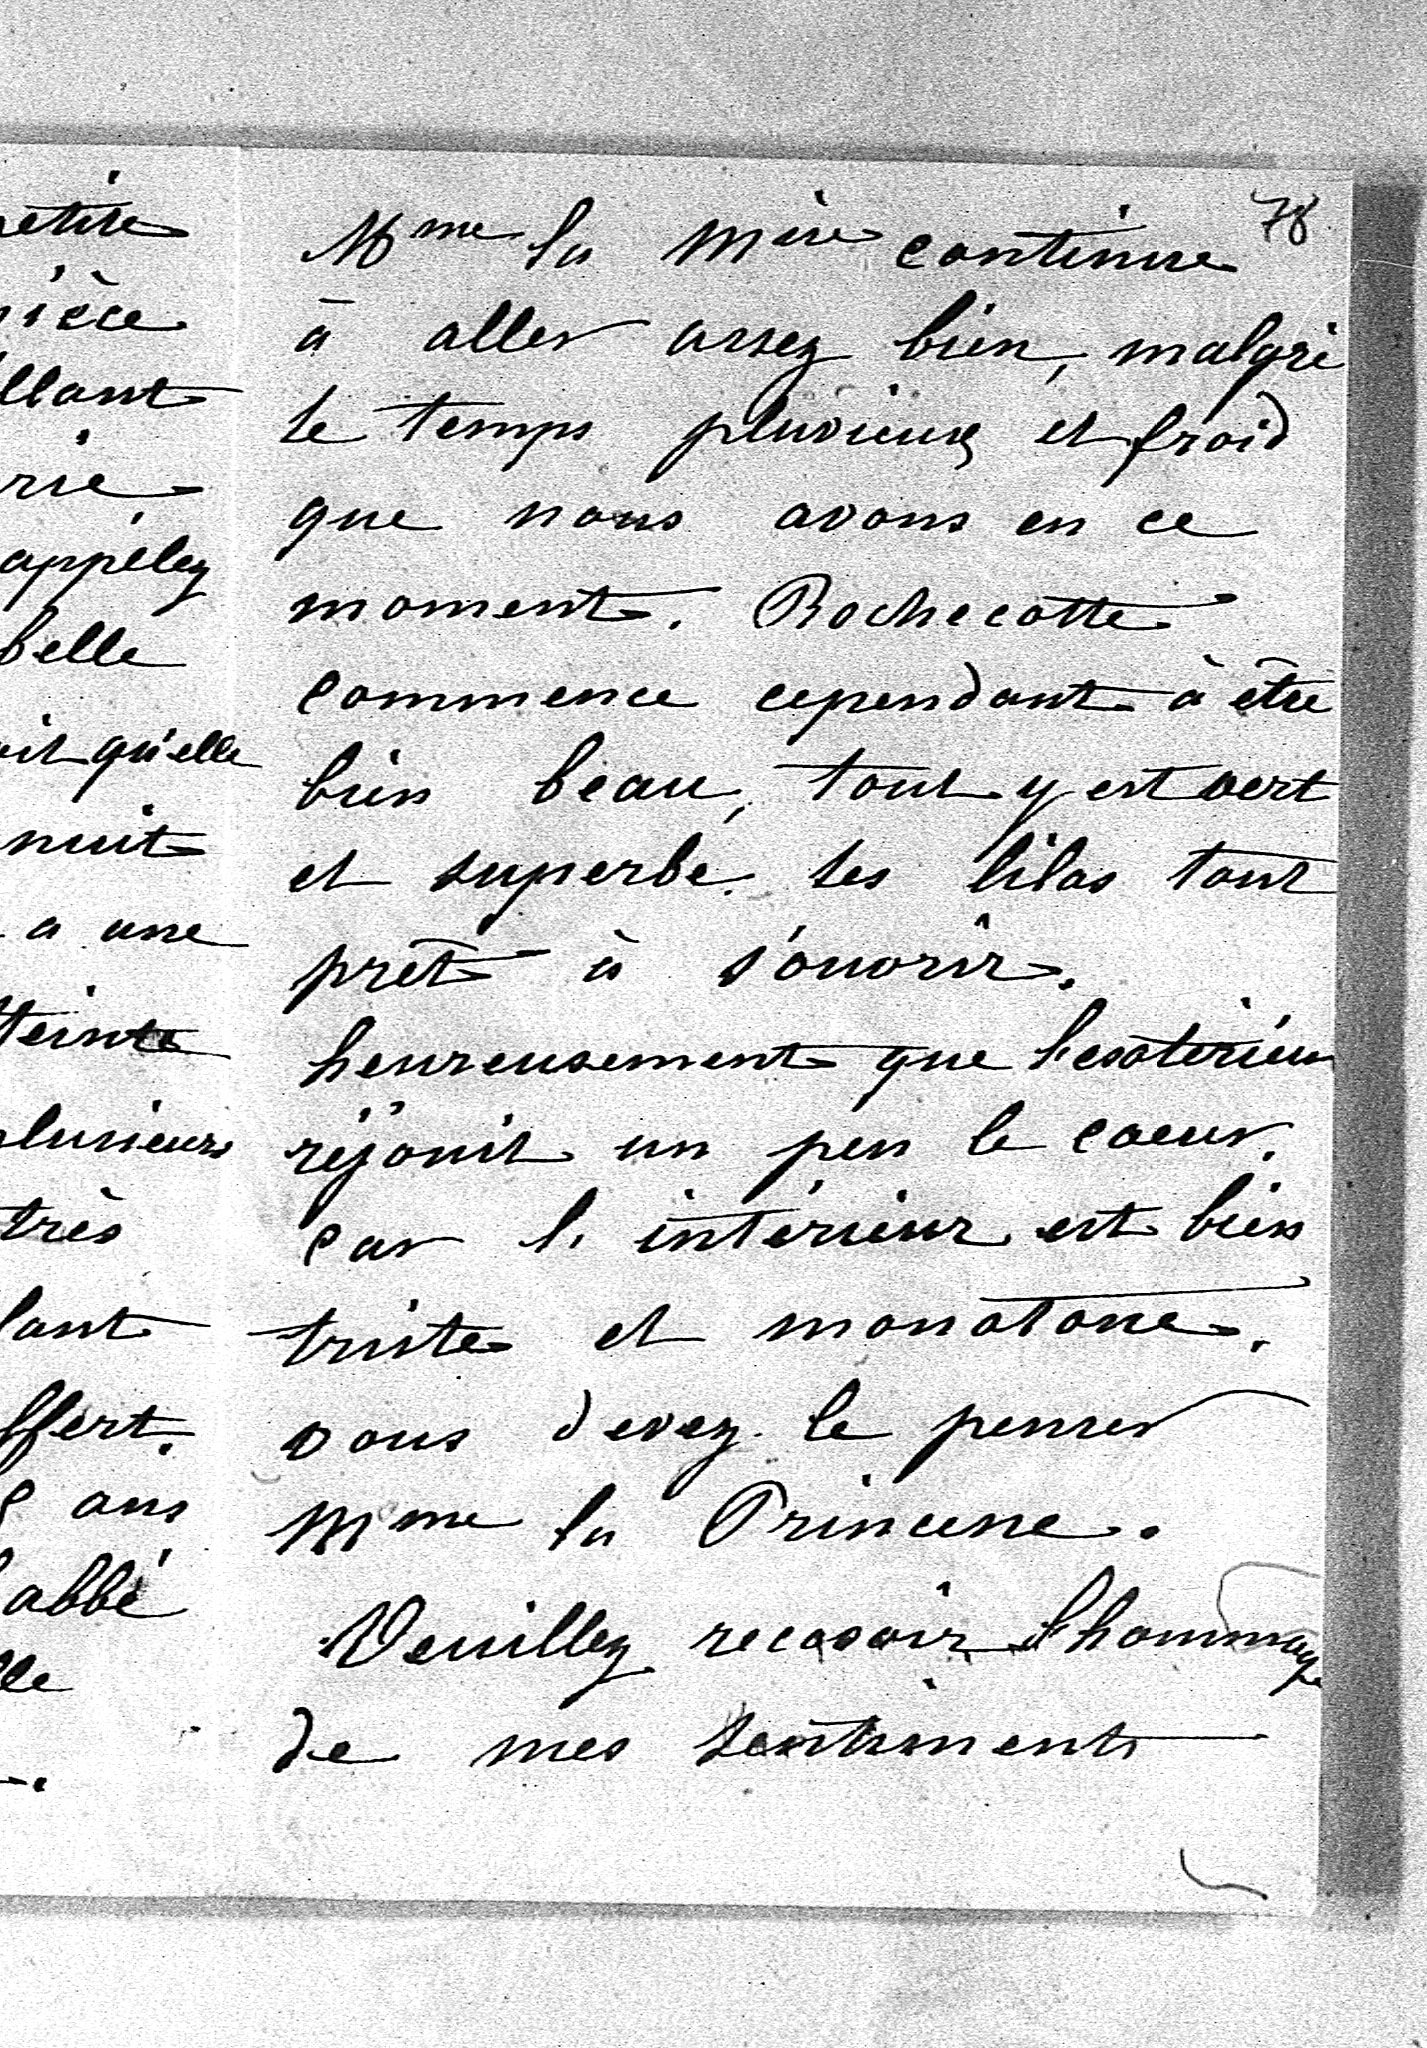 petite
nièce
illant
rie
appélez
belle
oit qu'elle
nuit
a une
tteinte
plusieurs
très
lant
ffert.
ans
l'abbé
lle
78
Mme la Mère continue
à aller assez bien, malgré
le temps pluvieux et froid
que nous avons en ce
moment. Rochecotte
commence cependant à être
bien beau, tout y est vert
et superbe. les lilas tout
prêt à s'ouvrir.
heureusement que l'extérieur
réjouit un peu le coeur,
car l'intérieur est bien
triste et monotone.
vous devez le penser
Mme la Princesse.
Veuillez recevoir l'hommage
de mes sentiments